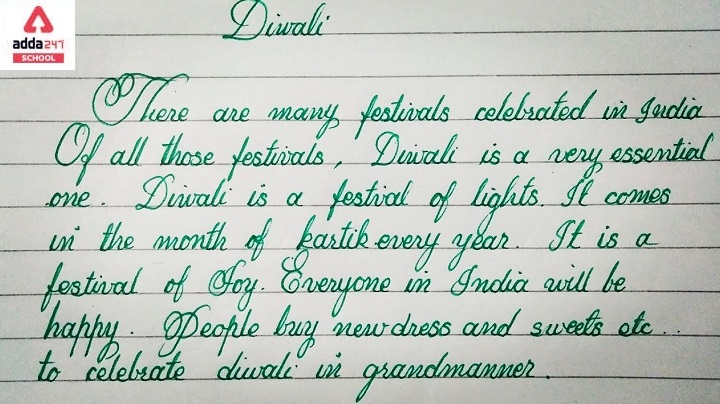 adda247
SCHOOL
Diwali
There are many festivals celebrated in India
Of all those festivals, Diwali is a very essential
one. Diwali is a festival of lights. It comes
in the month of kartik every year. It is a
festival of Joy. Everyone in India will be
happy. People buy new dress and sweets etc..
to celebrate diwali in grandmanner.